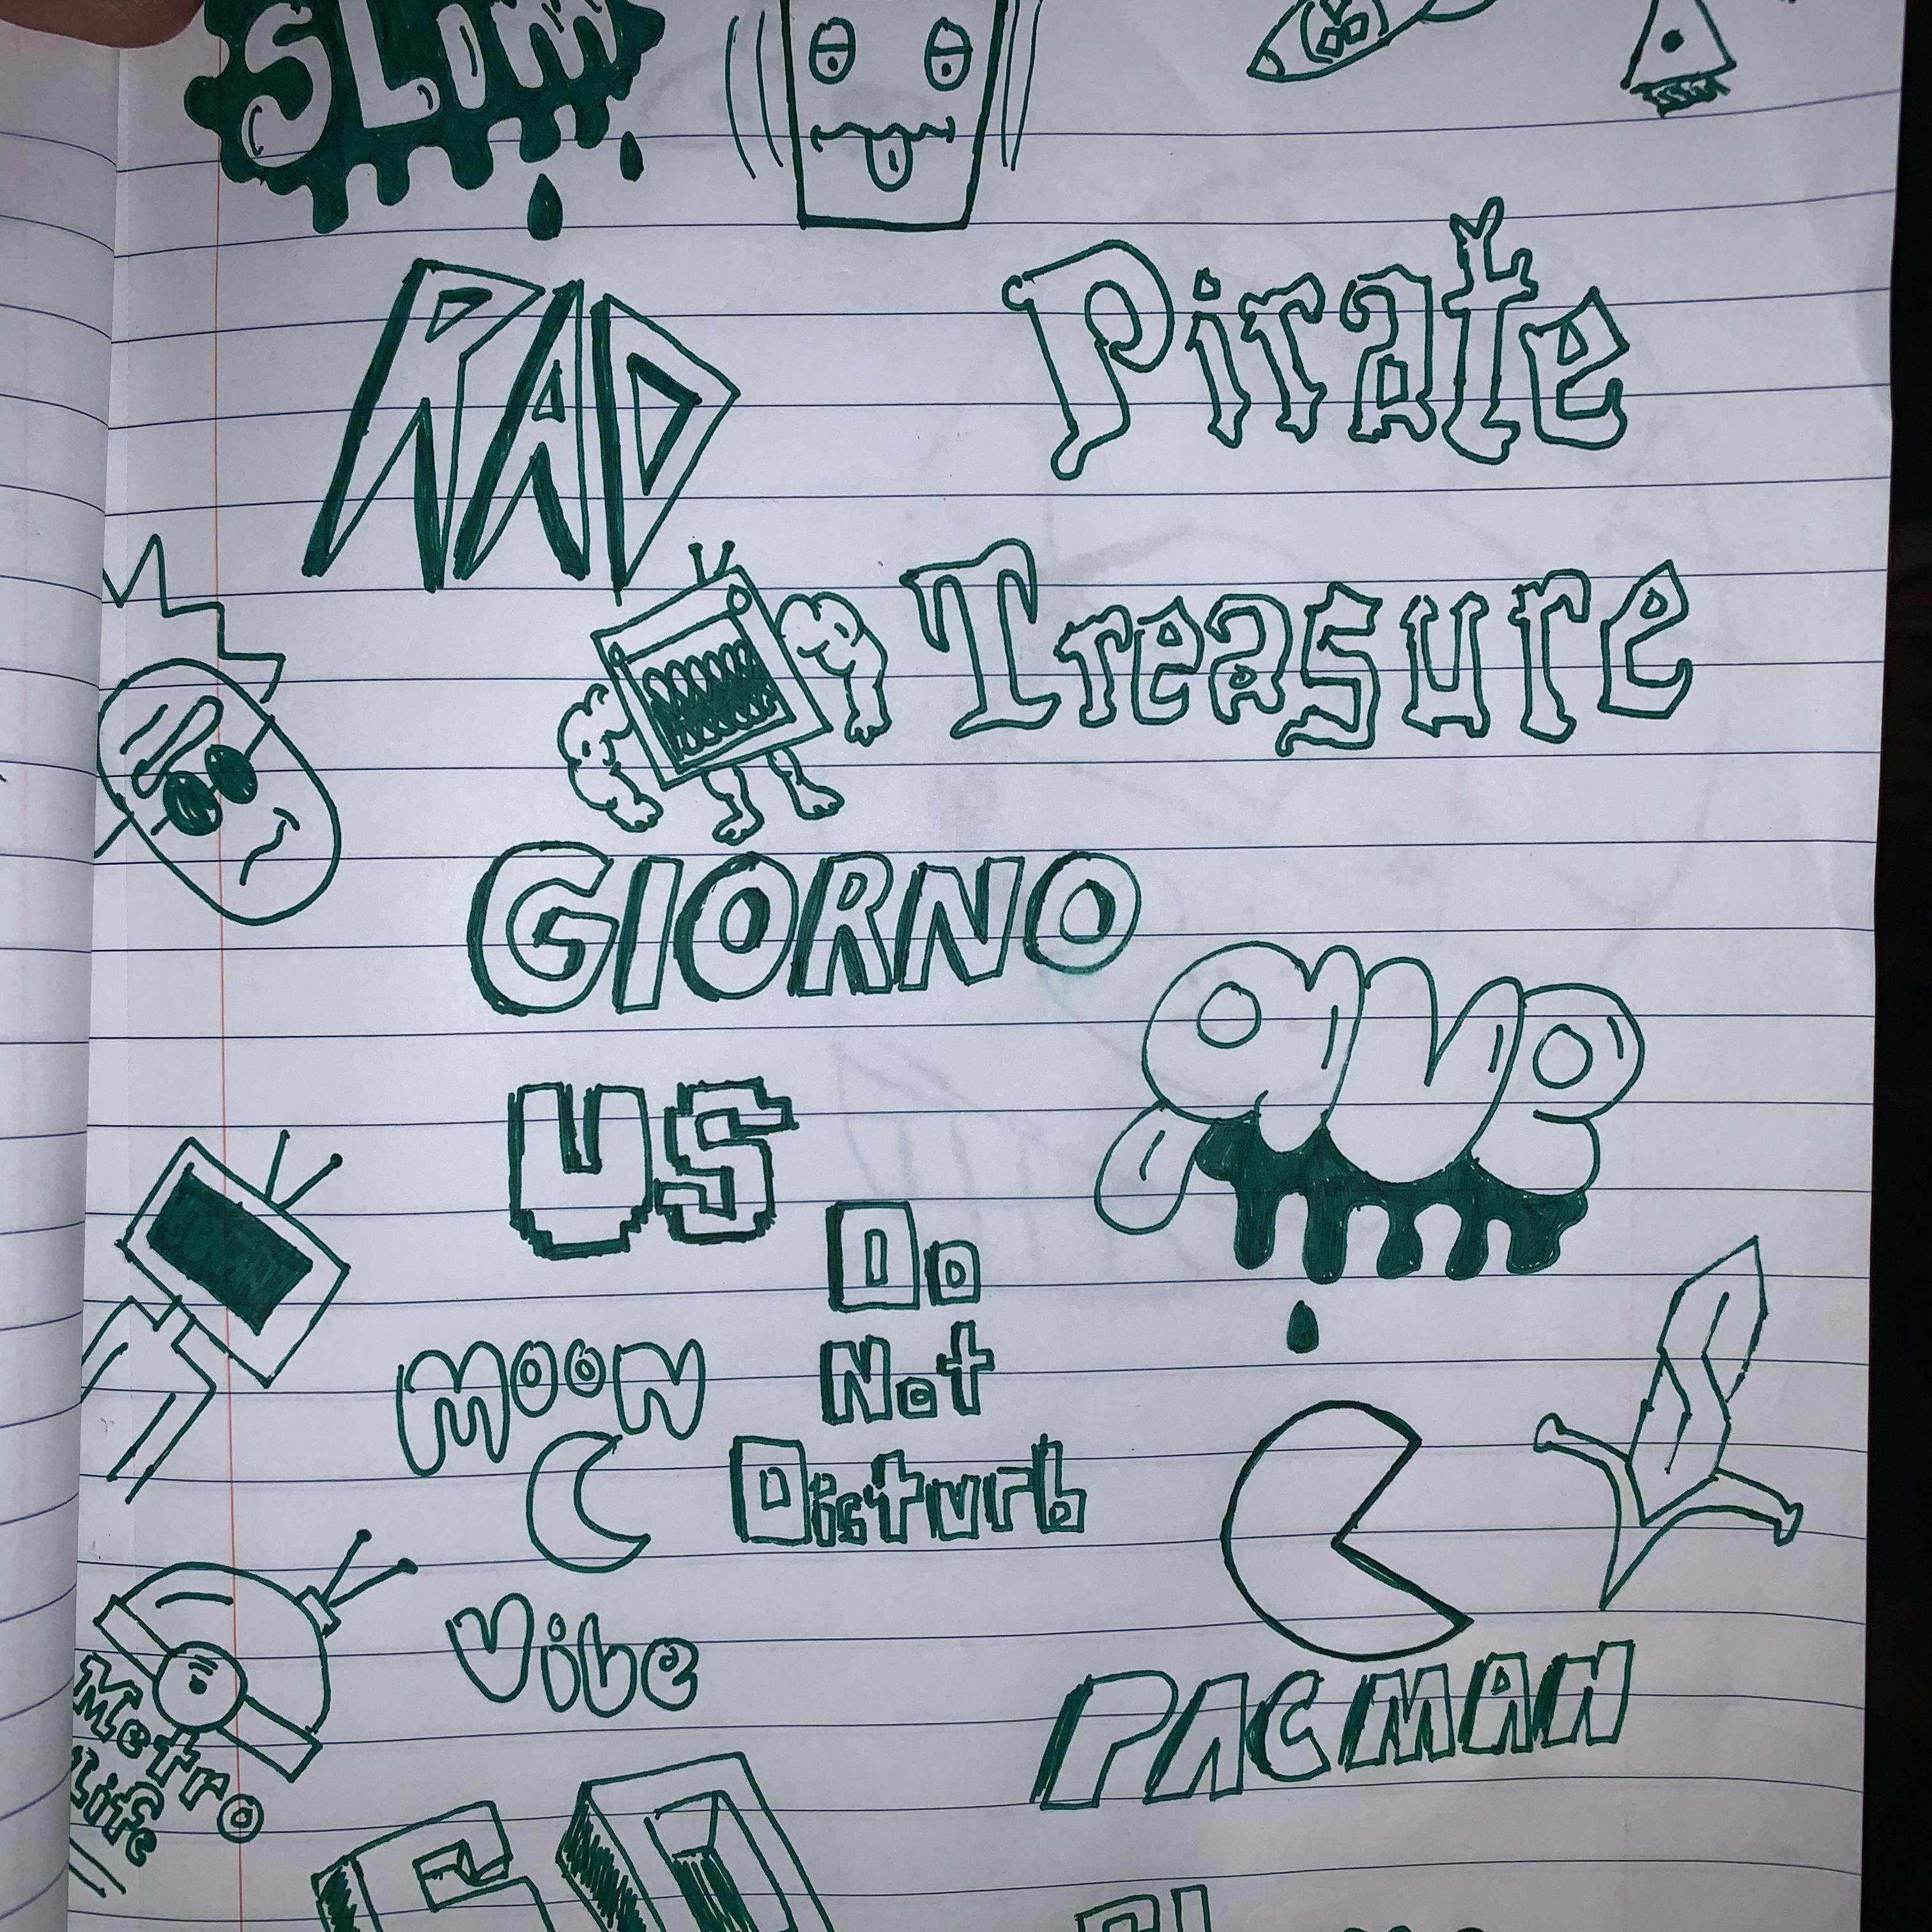 SLIM
RAD
Pirate
Treasure
GIORNO
US
Do
Not
Disturb
MOON
Vibe
PACMAN
Metro
Life